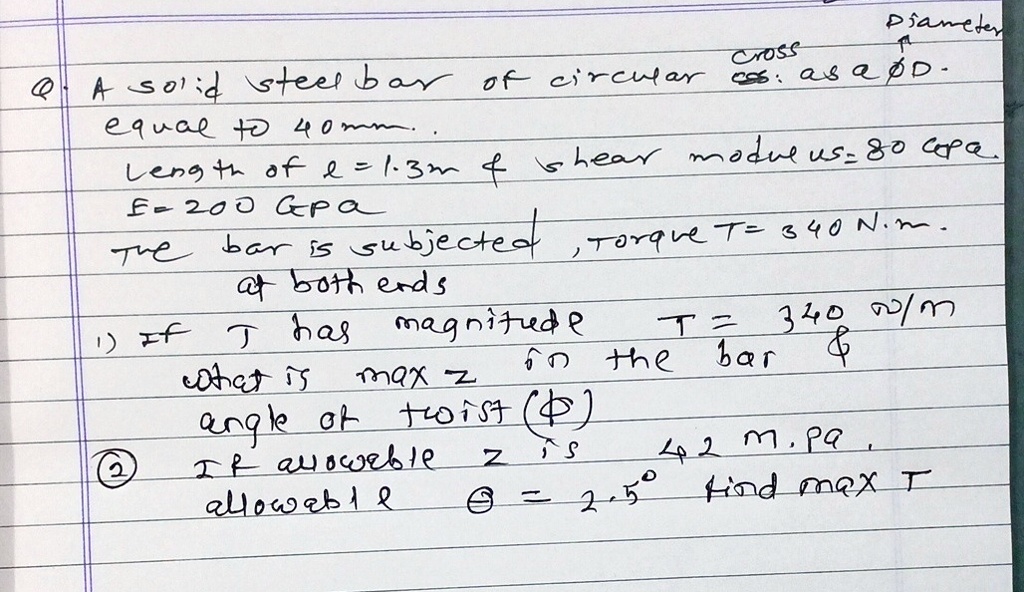 Diameter
Q. A solid steel bar of circular cross: as a ØD.
equal to 40mm..
Length of l = 1.3m & shear modulus = 80 Gpa.
E = 200 GPa
The bar is subjected, Torque T = 340 N.m.
at both ends
1) If T has magnitude T = 340 N/m
what is max z in the bar &
angle of twist (ϕ)
② If allowable z is 42 m.pa,
allowable θ = 2.5° find max T